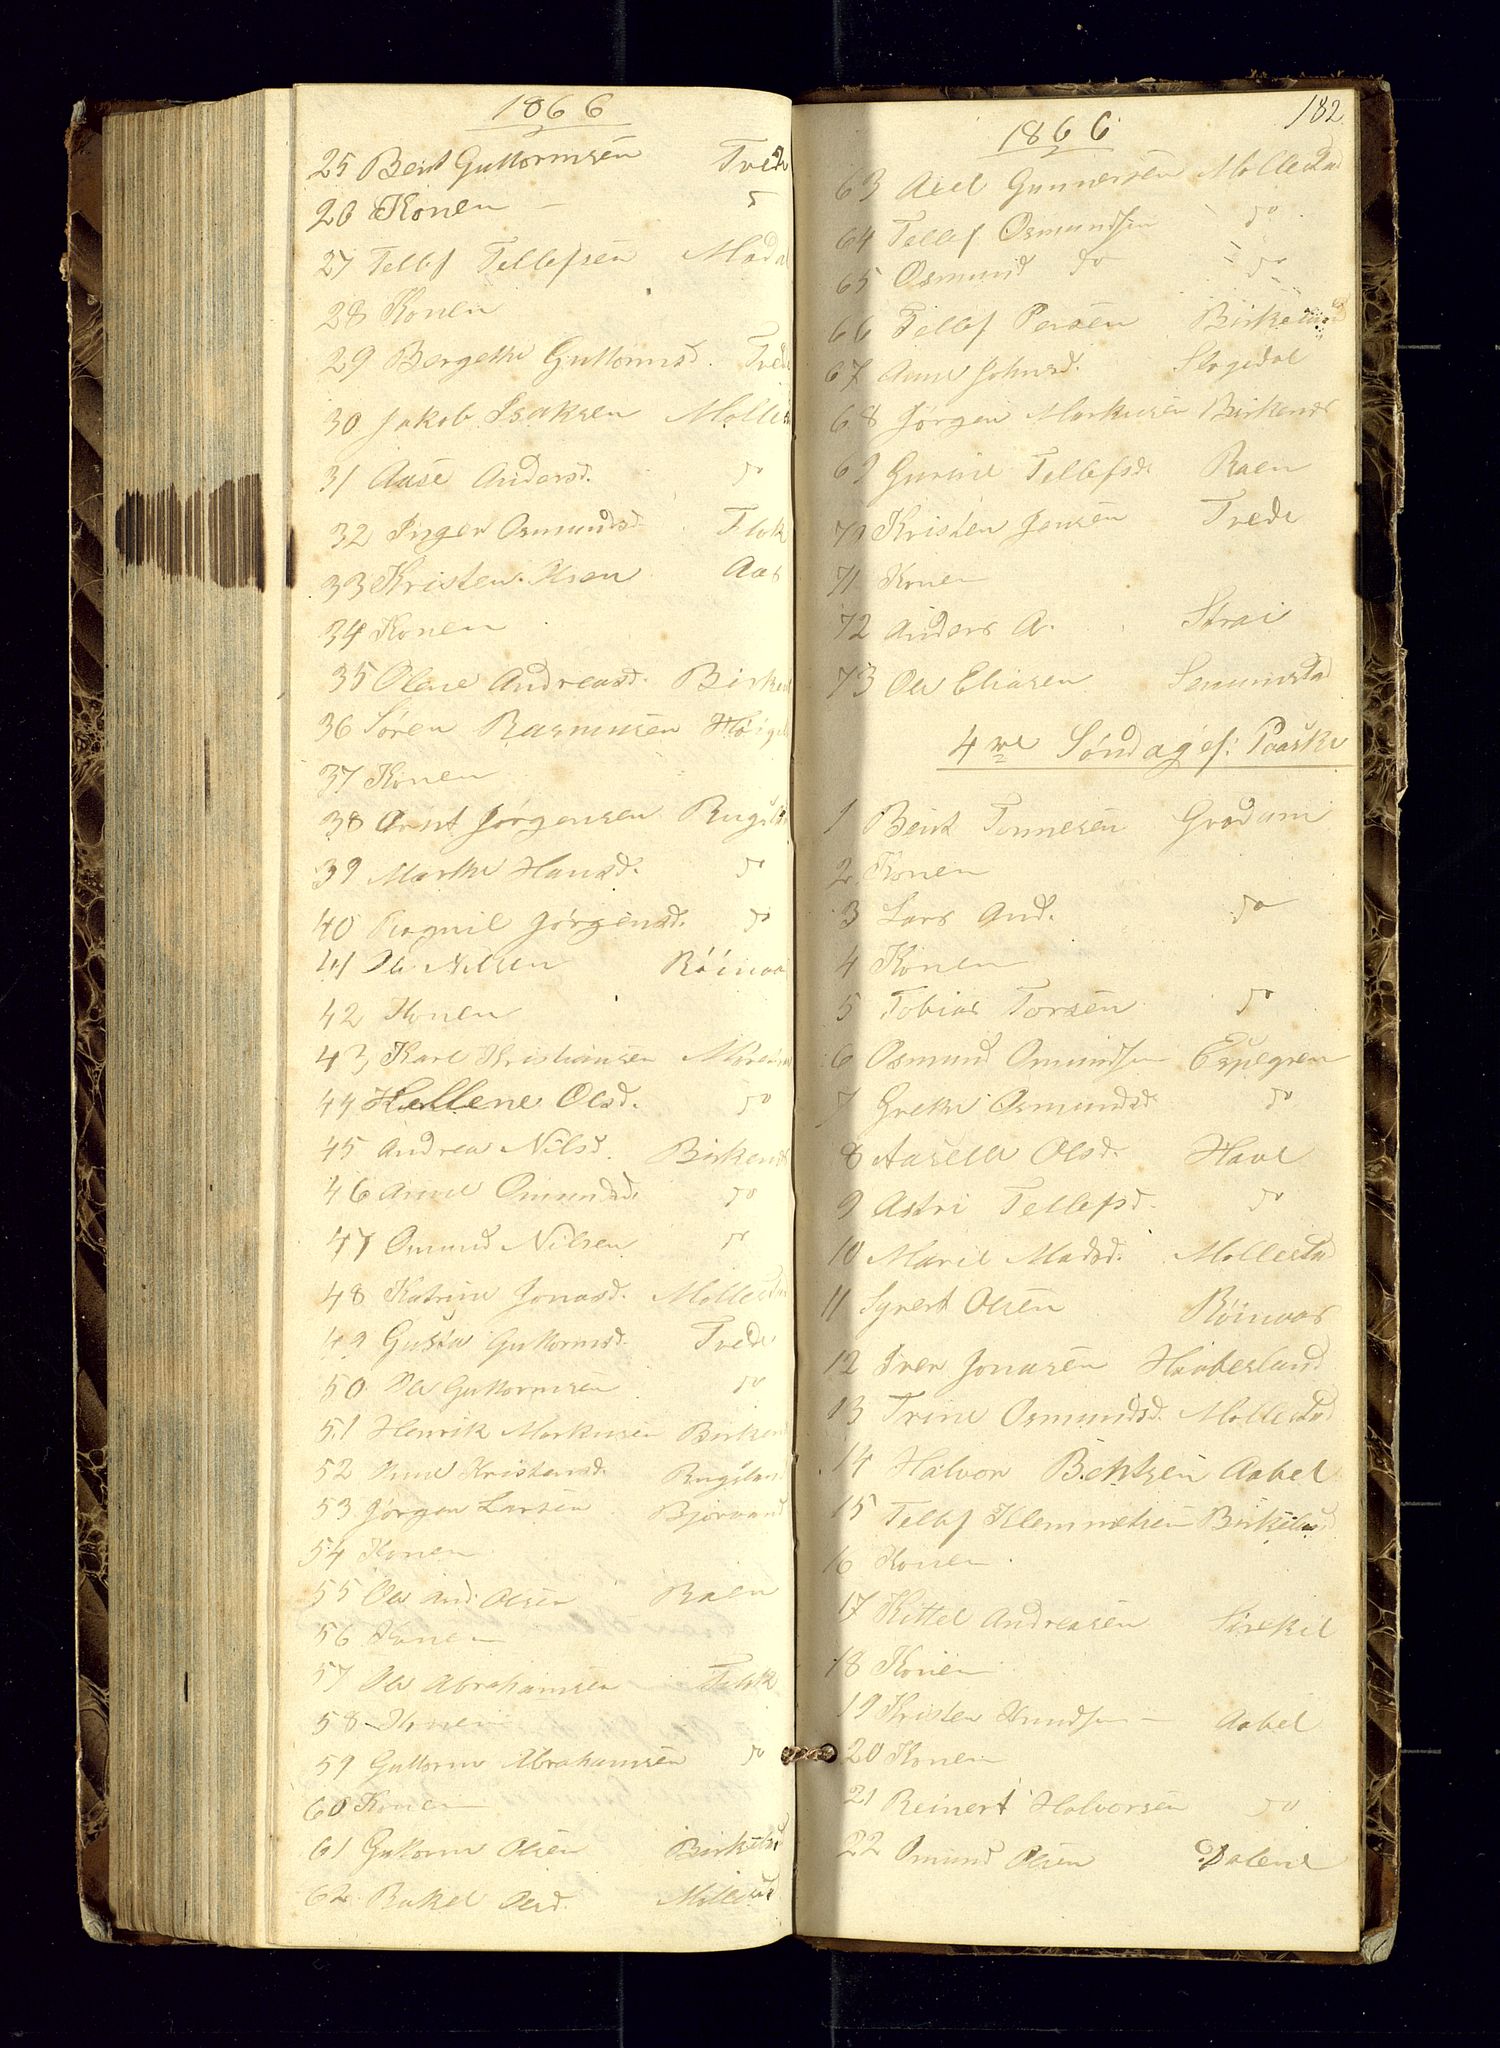 1866
25 Bent Guttormsen Tvede
26 Konen - do
27 Tellef Tellefsen
28 Konen
29 Bergethe Guttormsd. Tvede
30 Jakob Isaksen Molle
31 Aase Andersd. do
32 Inger Osmundsd. Flak
33 Kristen Aas
34 Konen
35 Olene Andreasd. Birken
36 Søren Rasmusen
37 Konen
38 Ornt Jørgensen Rugsla
39 Marthe Hansd. do
40 Ragnil Jørgensd. do
41 Ole Nilsen Röinaa
42 Konen
43 Karl Kristiansen
44 Hellene Olsd. do
45 Andrea Nilsd. Birkenes
46 Anne Omundsd. do
47 Omund Nilsen do
48 Katrine Jonasd. Mollestad
49 Gusta Guttormsd. Tvede
50 Ole Guttormsen do
51 Henrik Markusen Birken
52 Anne Kristensd. Rugslan
53 Jørgen Larsen Bjorvand
54 Konen
55 Ole And: Olsen Raen
56 Konen
57 Ole Abrahamsen Flak
58 Konen
59 Guttorm Abrahamsen do
60 Konen
61 Guttorm Olsen Birkelnd
62 Rakel Olsd. Mollestad
182
1866
63 Axel Gunnersen Mollestad
64 Tellef Osmundsen do
65 Osmund do do
66 Tellef Persen Birkelund
67 Anne Johnsd. Slogedal
68 Jørgen Markusen Birkenes
69 Gurine Tellefsd. Raen
70 Kristen Jensen Tvede
71 Konen
72 Anders A. Strai
73 Ole Eliasen Senumstad
4de Søndag ef: Paaske
1 Bent Tønnesen Grødum
2 Konen
3 Lars And. do
4 Konen
5 Tobias Torsen do
6 Osmund Omundsen Espegren
7 Grethe Osmundsd. do
8 Aaselle Olsd. Have
9 Astri Tellefsd. do
10 Marie Madsd. Mollestad
11 Syvert Olsen Röinaas
12 Iver Jonasen Haabesland
13 Trine Osmundsd. Mollestad
14 Halvor Bentsen Aabel
15 Tellef Klemmetsen Birkelund
16 Konen
17 Kittel Andreasen Sirekil
18 Konen
19 Kristen Knudsen - Aabel
20 Konen
21 Reinert Halvorsen do
22 Omund Olsen Dalene